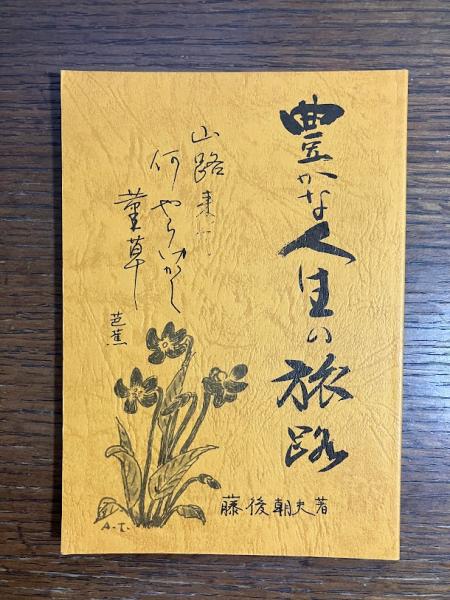 豊かな人生の旅路
山路来て
何やらゆかし
菫草
芭蕉
藤後朝史著
A.T.